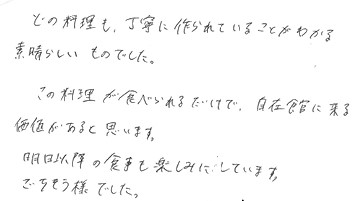 どの料理も、丁寧に作られていることがわかる
素晴らしいものでした。
この料理が食べられるだけで、自在館に来る
価値があると思います。
明日以降の食事も楽しみにしています。
ごちそう様でした。